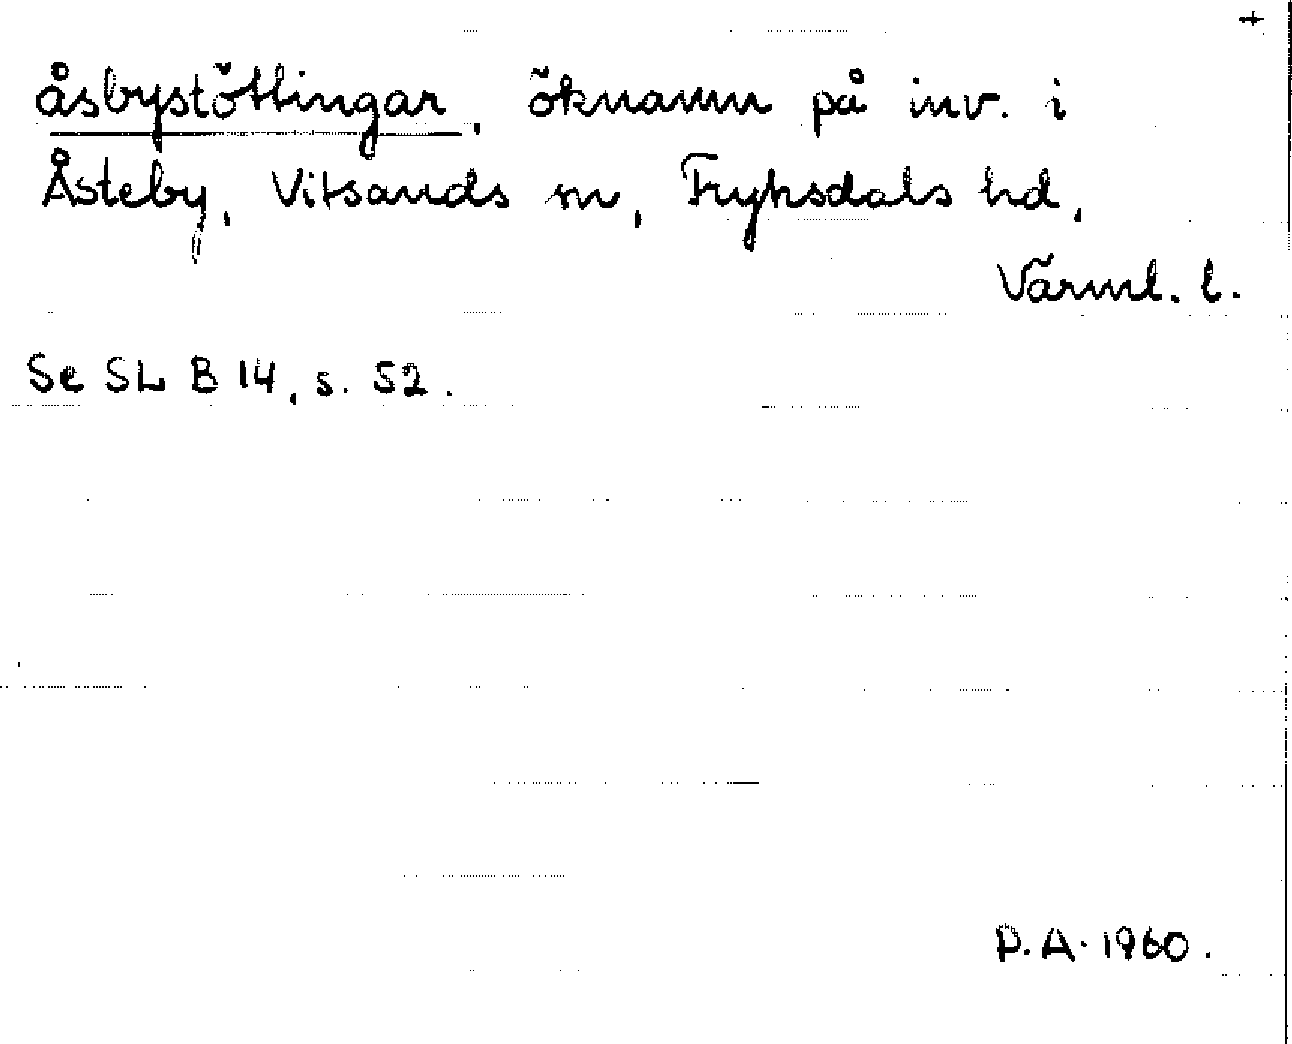 +
åsbystöttingar, öknamn på inv. i
Åsteby, Vitsands sn, Fryksdals hd,
Värml. l.
Se SL B 14, s. 52.
P.A. 1960.